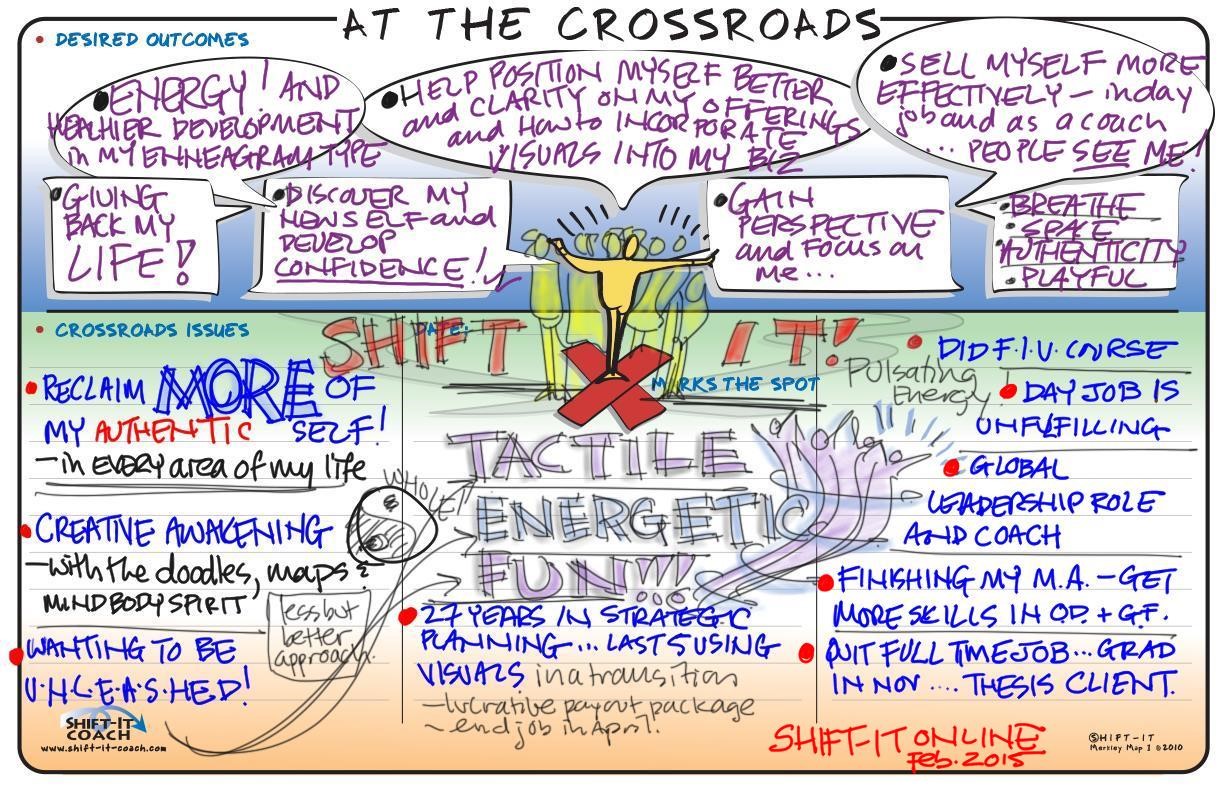 AT THE CROSSROADS
• DESIRED OUTCOMES
• ENERGY! AND
HEALHIER DEVELOPMENT
in MY ENNEAGRAM TYPE
• HELP POSITION MYSELF BETTER
and CLARITY ON MY OFFERINGS
and HOW to INCORPORATE
VISUALS INTO MY BIZ
• SELL MYSELF MORE
EFFECTIVELY – in day
job and as a coach
... PEOPLE SEE ME!
• GIVING
BACK MY
LIFE!
• DISCOVER MY
NEW SELF and
DEVELOP
CONFIDENCE!
• GAIN
PERSPECTIVE
and FOCUS on
me...
• BREATHE
• SPACE
• AUTHENTICITY
• PLAYFUL
• CROSSROADS ISSUES
DATE:
SHIFT IT!
MARKS THE SPOT
• RECLAIM MORE OF
MY AUTHENTIC SELF!
– in EVERY area of my life
• CREATIVE AWAKENING
– with the doodles, maps &
MIND BODY SPIRIT
less but
better
approach.
• WANTING TO BE
U·N·L·E·A·S·HED!
WHOLE!
TACTILE
ENERGETIC
FUN!!!
• 27 YEARS IN STRATEGIC
PLANNING... LAST 5 USING
VISUALS in a transition
– lucrative payout package
~ end job in April.
Pulsating
Energy!
• DID F.I.V. COURSE
• DAY JOB IS
UNFULFILLING
• GLOBAL
LEADERSHIP ROLE
AND COACH
• FINISHING MY M.A. – GET
MORE SKILLS IN O.D. + G.F.
• QUIT FULL TIME JOB... GRAD
IN NOV .... THESIS CLIENT.
SHIFT-IT
COACH
www.shift-it-coach.com
SHIFT-IT ONLINE
Feb. 2015
SHIFT-IT
Merkley Map 1 © 2010